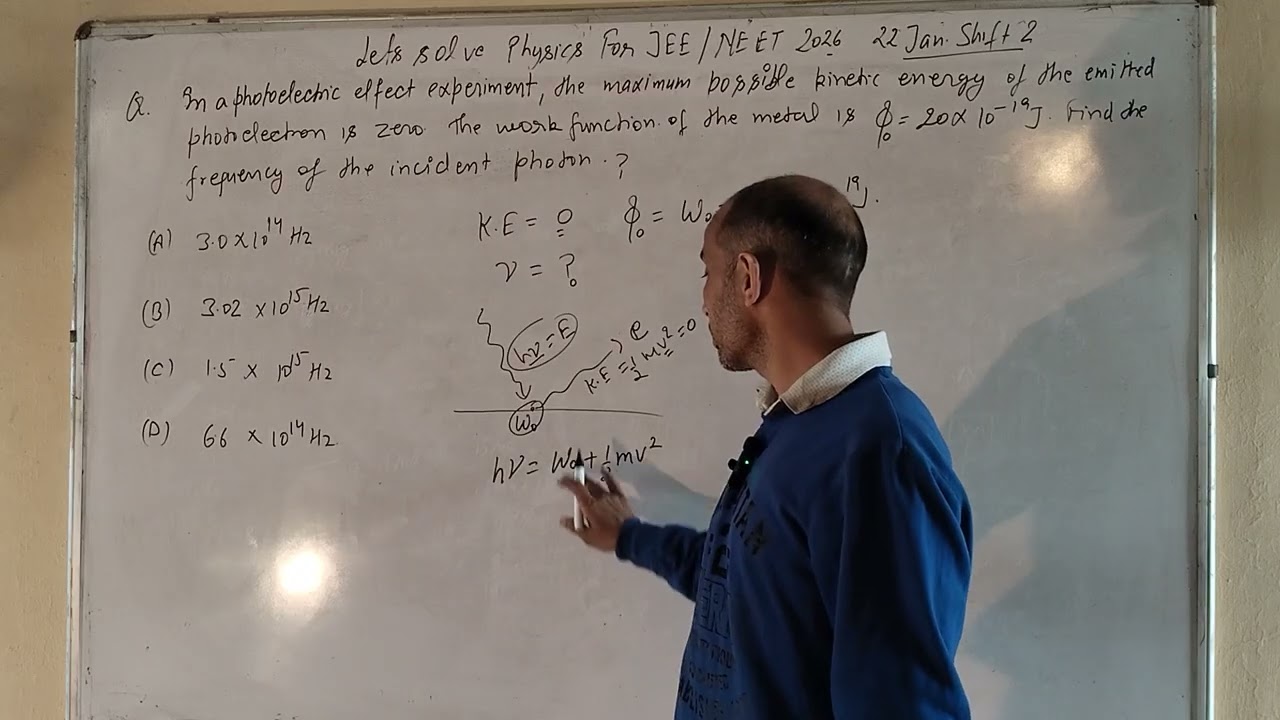 Lets solve Physics For JEE/NEET 2026 22 Jan. Shift 2
Q. In a photoelectric effect experiment, the maximum possible kinetic energy of the emitted
photoelectron is zero. The work function of the metal is ϕ₀ = 20 × 10⁻¹⁹ J. Find the
frequency of the incident photon. ?
K.E = 0 ϕ₀ = W₀ 19 J.
(A) 3.0 × 10¹⁴ Hz
ν = ?
(B) 3.02 × 10¹⁵ Hz
hν = E
e
K.E = ½ mv² = 0
(C) 1.5 × 10¹⁵ Hz
W₀
(D) 66 × 10¹⁴ Hz
hν = W₀ + ½ mv²